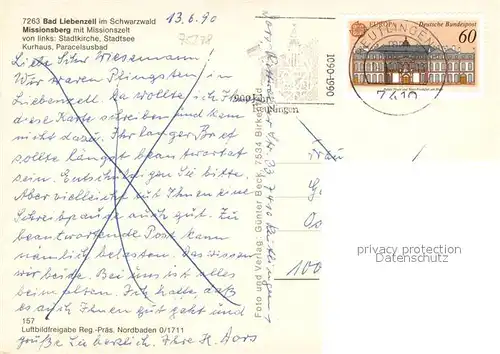 7263 Bad Liebenzell im Schwarzwald
Missionsberg mit Missionszelt
von links: Stadtkirche, Stadtsee
Kurhaus, Paracelsusbad
13.6.90
Liebe Schw. Wiesemann!
Wir waren Pfingsten in
Liebenzell. Da wollte ich Ihnen
diese Karte schreiben und kam
nicht dazu. Ihr langer Brief
sollte längst beantwortet
sein. Entschuldigen Sie bitte.
Aber vielleicht tut Ihnen eine
Schreibpause auch gut. Zu
beantwortende Post kann
nämlich belasten. Das wissen
wir beide. Bei uns ist alles
beim alten. Ich hoffe, daß
es auch Ihnen gut geht und
grüße Sie herzlich. Ihre H.
157
Luftbildfreigabe Reg.-Präs. Nordbaden 0/1711
Foto und Verlag: Günter Beck, 7534 Birkenfeld
1090-1990
900 Jahre
Reutlingen
REUTLINGEN
7410
EUROPA
Deutsche Bundespost
60
Frau
1000
privacy protection
Datenschutz